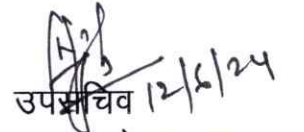 उपसचिव 12/6/24